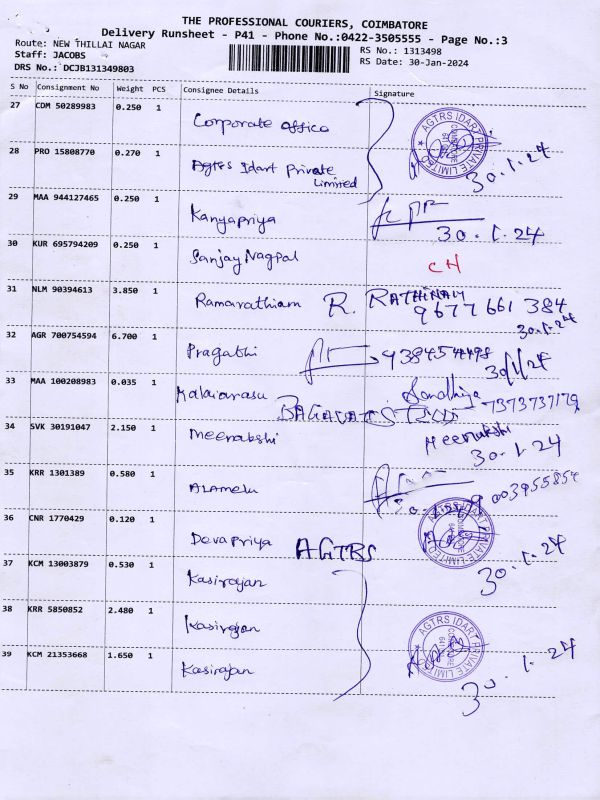 THE PROFESSIONAL COURIERS, COIMBATORE
Delivery Runsheet - P41 - Phone No.:0422-3505555 - Page No.:3
Route: NEW THILLAI NAGAR
RS No.: 1313498
Staff: JACOBS
RS Date: 30-Jan-2024
DRS No.: DCJB131349803
S No Consignment No Weight PCS Consignee Details Signature
27 CDM 50289983 0.250 1
Corporate office
AGTRS IDART PRIVATE LIMITED
30.1.24
28 PRO 15808770 0.270 1
Agtrs Idart Private
Limited
29 MAA 944127465 0.250 1
Kanyapriya
30.1.24
30 KUR 695794209 0.250 1
Sanjay Nagpal
CH
31 NLM 90394613 3.850 1
Ramarathiam R. RATHINAM
9677 661 384
30.1.24
32 AGR 700754594 6.700 1
Pragathi
30/1/24
33 MAA 100208983 0.035 1
Kalaiarasu
Sandhiya
7373737179
34 SVK 30191047 2.150 1
Meenakshi
Meenakshi
30.1.24
35 KRR 1301389 0.580 1
Alamelu
003955854
36 CNR 1770429 0.120 1
Devapriya AGTRS
AGTRS IDART PRIVATE LIMITED
30.1.24
37 KCM 13003879 0.530 1
Kasirajan
38 KRR 5850852 2.480 1
Kasirajan
AGTRS IDART PRIVATE LIMITED
39 KCM 21353668 1.650 1
Kasirajan
30.1.24